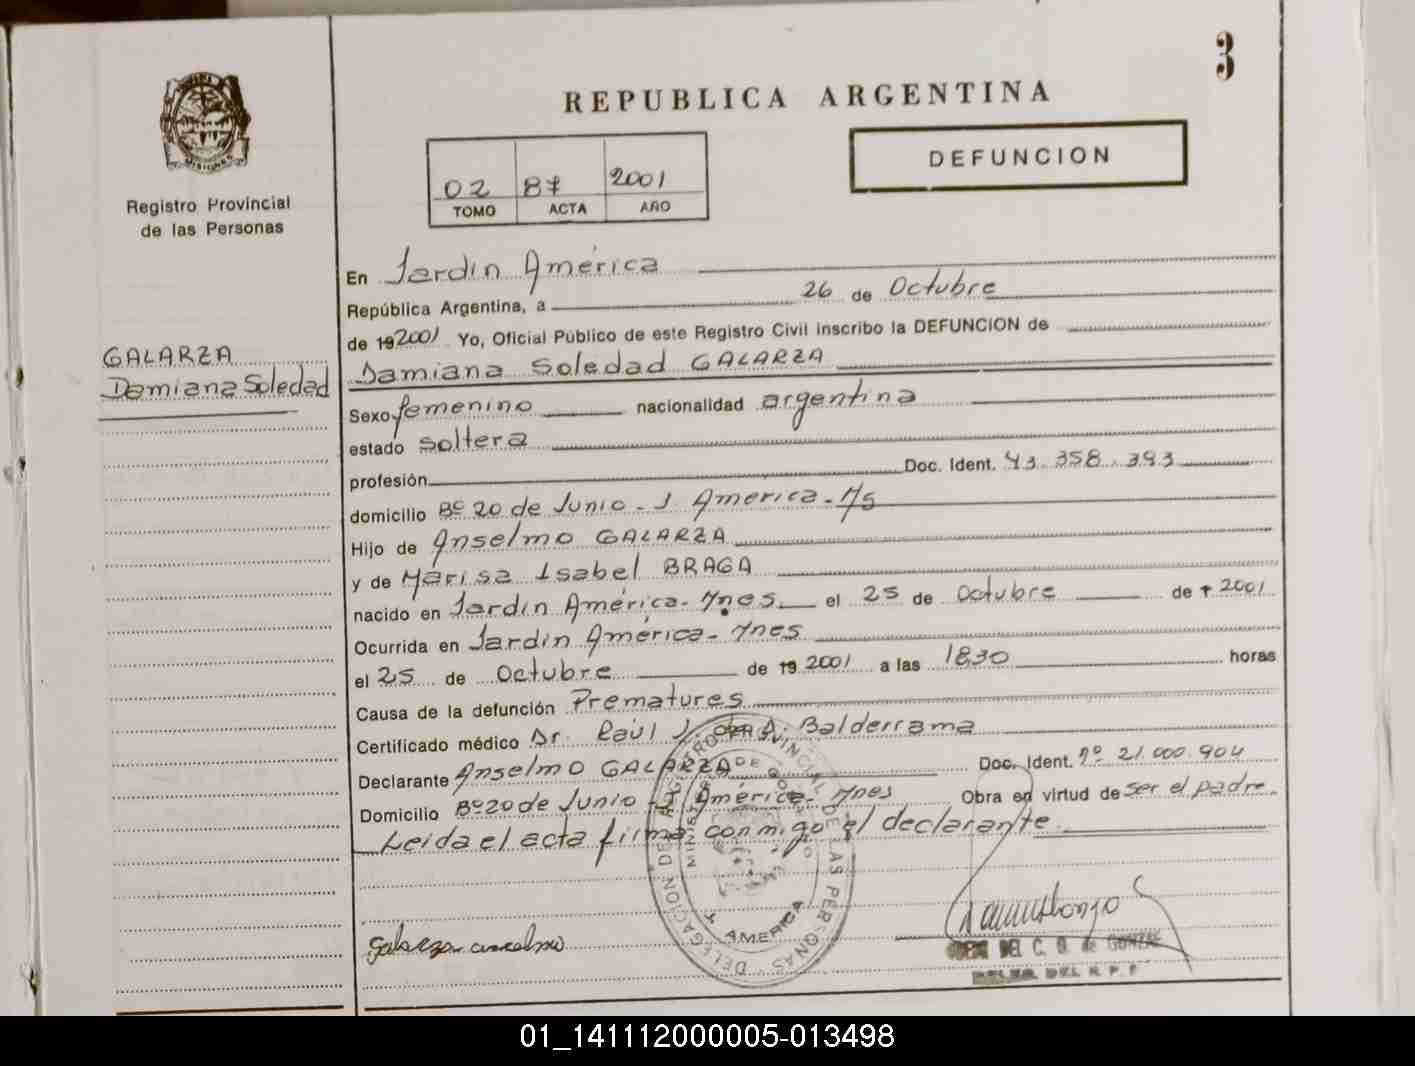 3
REPUBLICA ARGENTINA
DEFUNCION
02 87 2001
TOMO ACTA AÑO
MISIONES
Registro Provincial
de las Personas
GALARZA
Damiana Soledad
En Jardín América
República Argentina, a 26 de Octubre
de 192001 Yo, Oficial Público de este Registro Civil inscribo la DEFUNCION de
Damiana Soledad GALARZA
Sexo femenino nacionalidad argentina
estado soltera
profesión Doc. Ident. 43.358.393
domicilio Bº 20 de Junio - J América - Ms
Hijo de Anselmo GALARZA
y de Marisa Isabel BRAGA
nacido en Jardín América - Mnes el 25 de Octubre de 1 2001
Ocurrida en Jardín América - Mnes
el 25 de Octubre de 19 2001 a las 1830 horas
Causa de la defunción Prematures
Certificado médico Dr. Raúl J. Balderrama
Declarante Anselmo GALARZA Doc. Ident. Nº 21.000.904
Domicilio Bº 20 de Junio - J América - Mnes Obra en virtud de ser el padre.
Leida el acta firma conmigo el declarante.
DELEGACION DEL REGISTRO PROVINCIAL DE LAS PERSONAS
J. AMERICA
Galarza anselmo
DEL C. G. de
DEL R. P. P
01_141112000005-013498